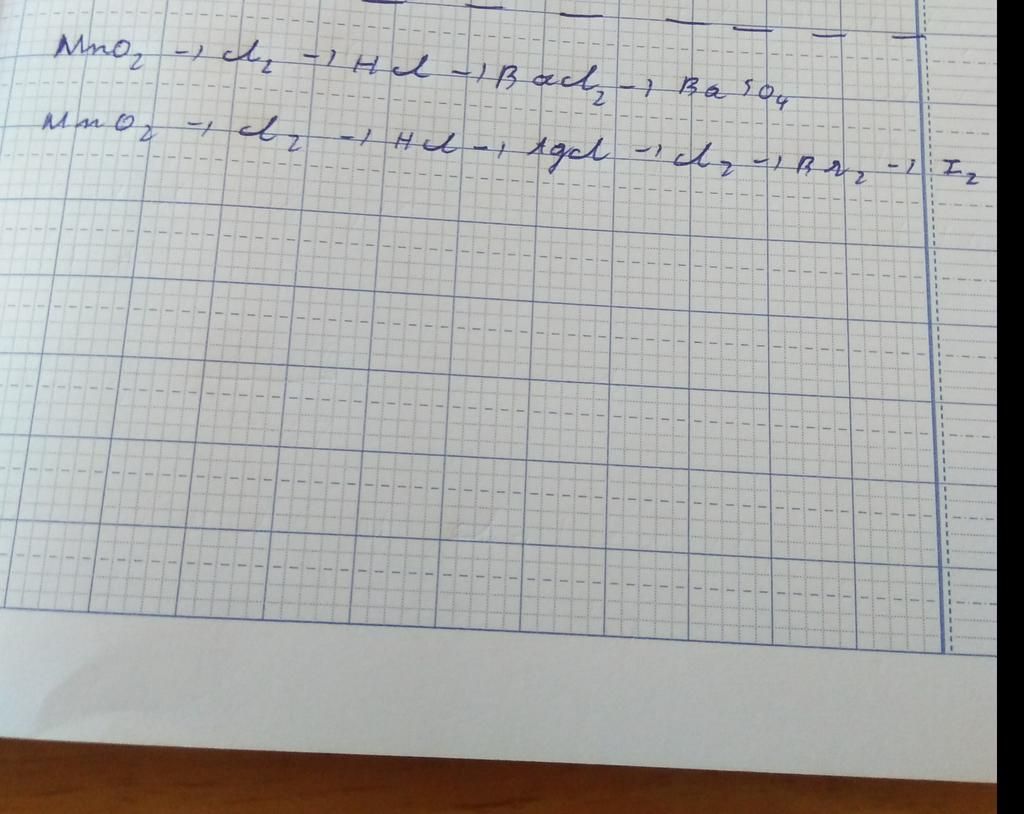 MnO₂ → Cl₂ → HCl → BaCl₂ → BaSO₄
MnO₂ → Cl₂ → HCl → AgCl → Cl₂ → Br₂ → I₂